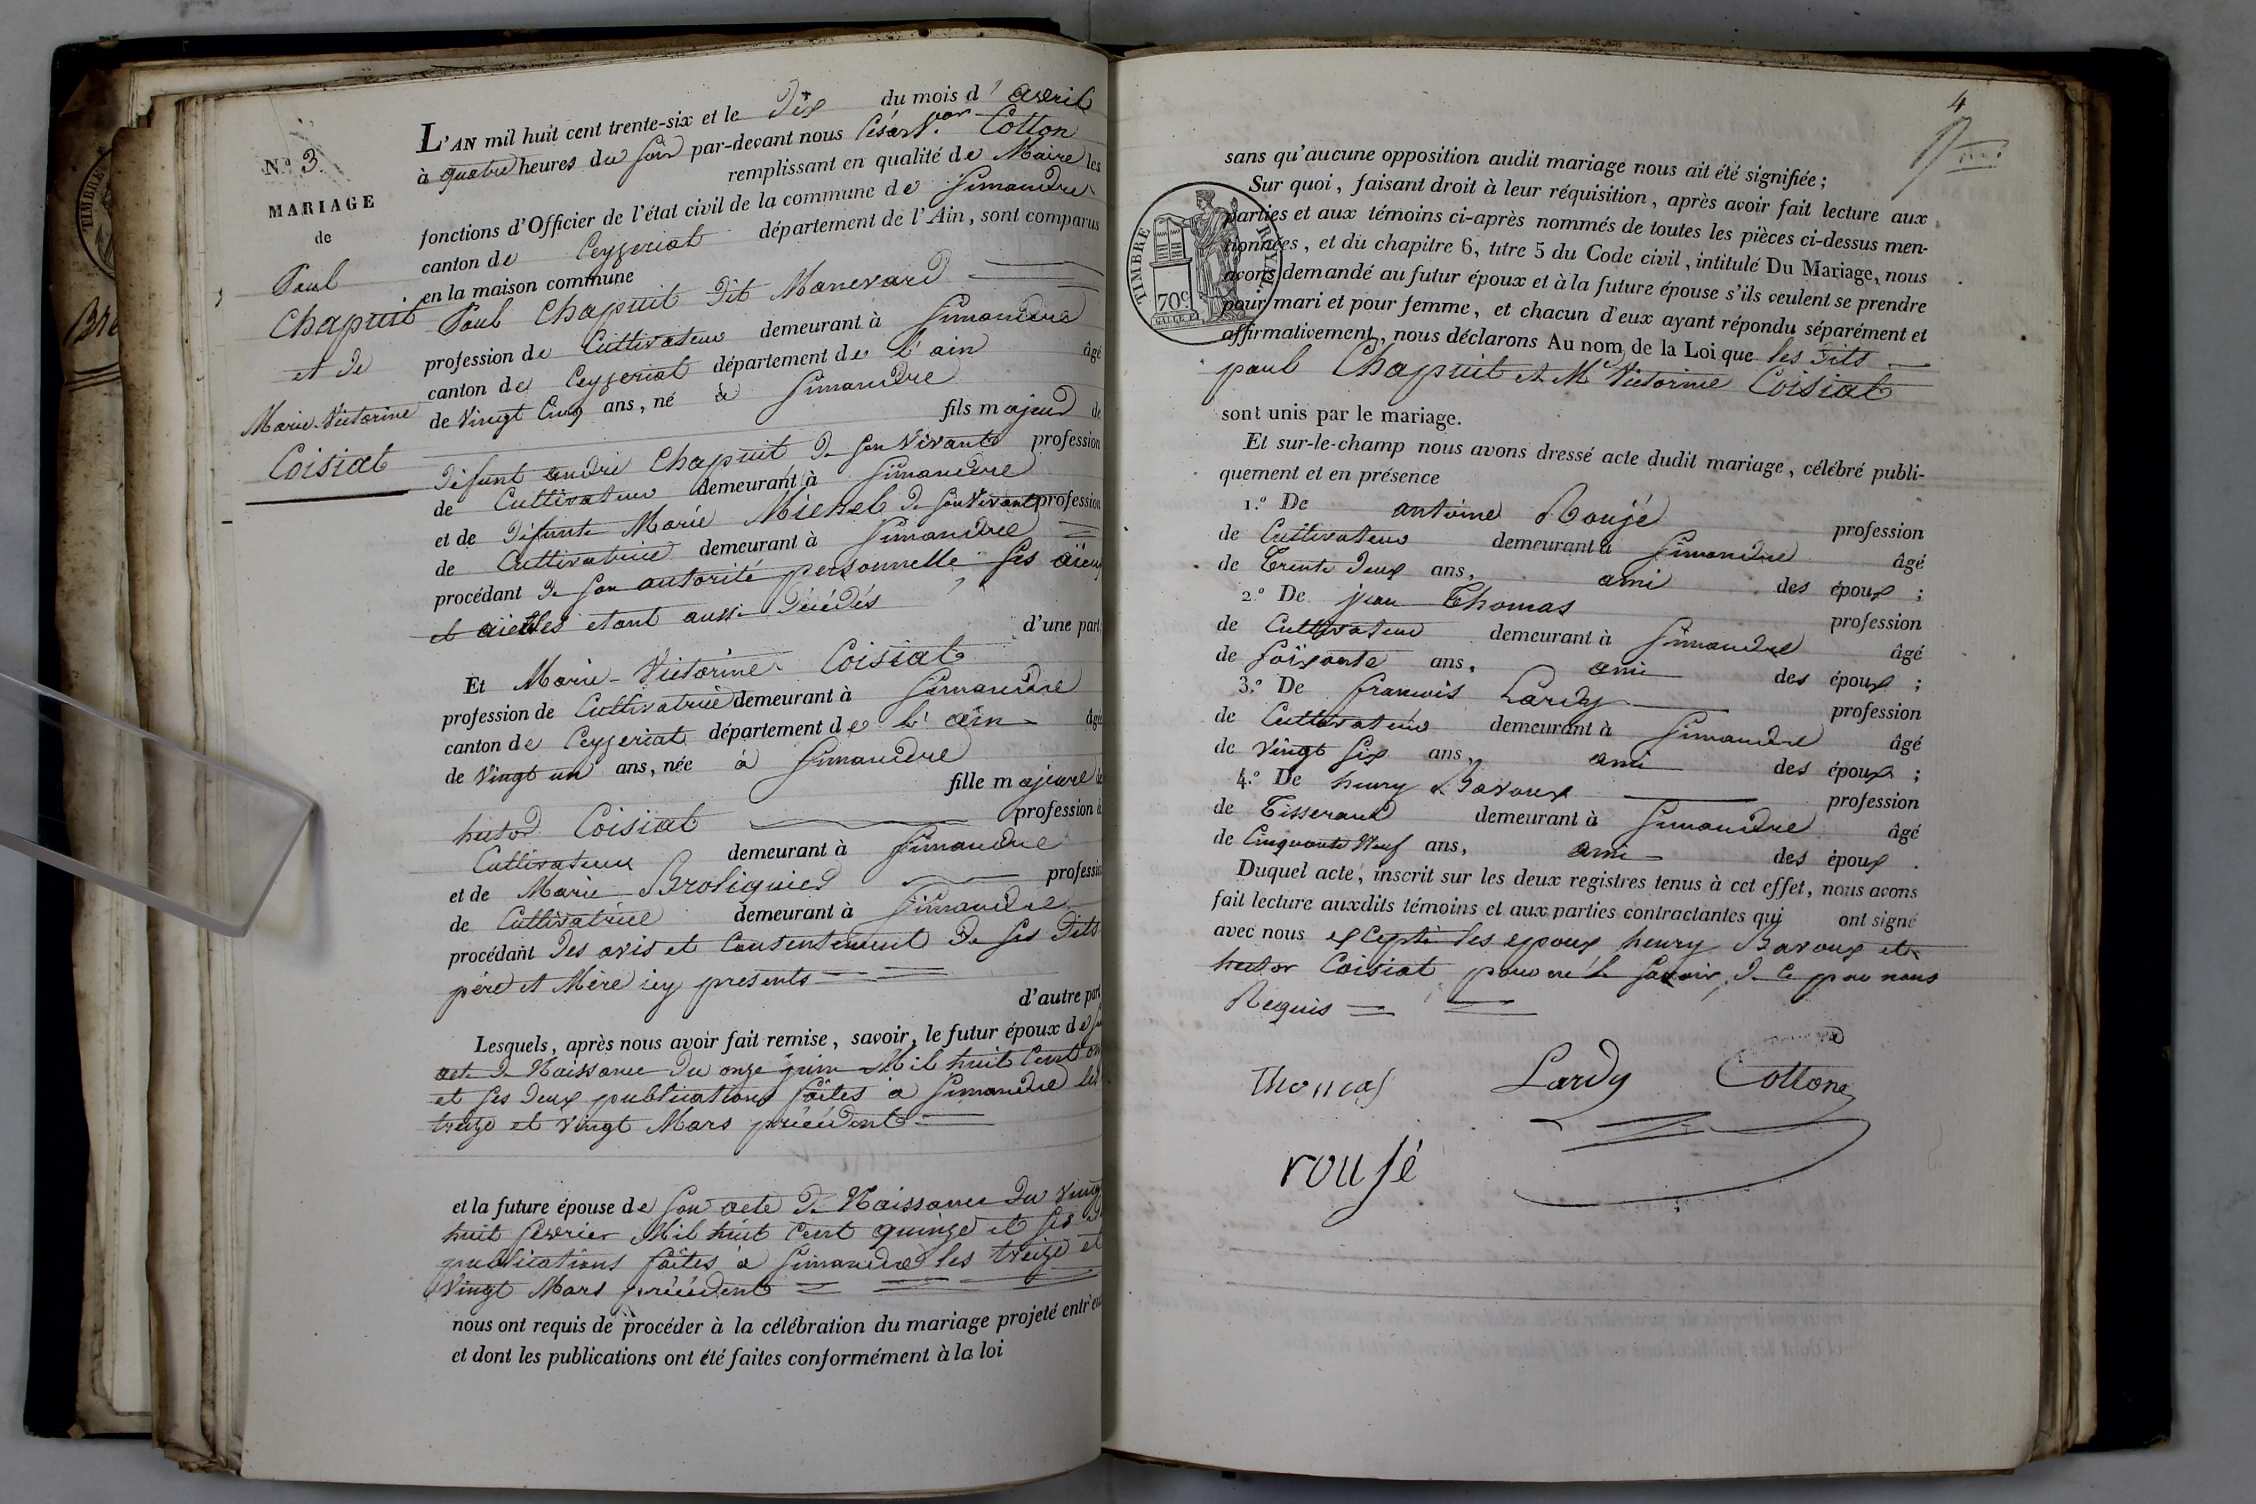 N.º 3.
MARIAGE
de
Paul
Chapuit
et de
Marie-Victorine
Coisiat
L'AN mil huit cent trente-six et le Dix du mois d' avril
à quatre heures du soir par-devant nous César V.or Cotton
remplissant en qualité de Maire les
fonctions d'Officier de l'état civil de la commune de Simandre
canton de Ceyzeriat département de l'Ain, sont comparus
en la maison commune
Paul Chapuit dit Manevard
profession de Cultivateur demeurant à Simandre
canton de Ceyzeriat département de l'ain âgé
de Vingt Cinq ans, né à Simandre
fils majeur de
défunt andré Chapuit de son Vivant profession
de Cultivateur demeurant à Simandre
et de défunte Marie Michel de son Vivant profession
de Cultivatrice demeurant à Simandre
procédant de son autorité personnelle ses aïeux
et aïeules etant aussi décédés
d'une part
Et Marie-Victorine Coisiat
profession de Cultivatrice demeurant à Simandre
canton de Ceyzeriat département de l'ain âgé
de Vingt un ans, née à Simandre
fille majeure de
hector Coisiat profession d
Cultivateur demeurant à Simandre
et de Marie Broliquier profession
de Cultivatrice demeurant à Simandre
procédant des avis et Consentement de ses dits
père et Mère icy presents
d'autre part
Lesquels, après nous avoir fait remise, savoir, le futur époux de so
acte de Naissance du onze juin Mil huit Cent on
et ses deux publications faites à Simandre les
treize et vingt Mars précédent
et la future épouse de son acte de Naissance du Ving
huit fevrier Mil huit Cent quinze et ses d
publications faites à Simandre les treize et
Vingt Mars précédent
nous ont requis de procéder à la célébration du mariage projeté entr'eu
et dont les publications ont été faites conformément à la loi
4
sans qu'aucune opposition audit mariage nous ait été signifiée;
Sur quoi, faisant droit à leur réquisition, après avoir fait lecture aux
parties et aux témoins ci-après nommés de toutes les pièces ci-dessus men-
tionnées, et du chapitre 6, titre 5 du Code civil, intitulé Du Mariage, nous
avons demandé au futur époux et à la future épouse s'ils veulent se prendre
pour mari et pour femme, et chacun d'eux ayant répondu séparément et
affirmativement, nous déclarons Au nom de la Loi que les dits
paul Chapuit et M.e Victorine Coisiat
TIMBRE ROYAL
70c
sont unis par le mariage.
Et sur-le-champ nous avons dressé acte dudit mariage, célébré publi-
quement et en présence
1.º De antoine Roujé profession
de Cultivateur demeurant à Simandre âgé
de Trente deux ans, ami des époux;
2.º De jean Thomas profession
de Cultivateur demeurant à Simandre âgé
de soixante ans, ami des époux;
3.º De francois Lardy profession
de Cultivateur demeurant à Simandre âgé
de Vingt six ans, ami des époux;
4.º De henry Bavoux profession
de Tisserand demeurant à Simandre âgé
de Cinquante Neuf ans, ami des époux.
Duquel acte, inscrit sur les deux registres tenus à cet effet, nous avons
fait lecture auxdits témoins et aux parties contractantes qui ont signé
avec nous excepté les epoux henry Bavoux et
hector Coisiat pour ne le savoir de ce par nous
Requis
Thomas
Lardy
Cotton
rousé
TIMBRE